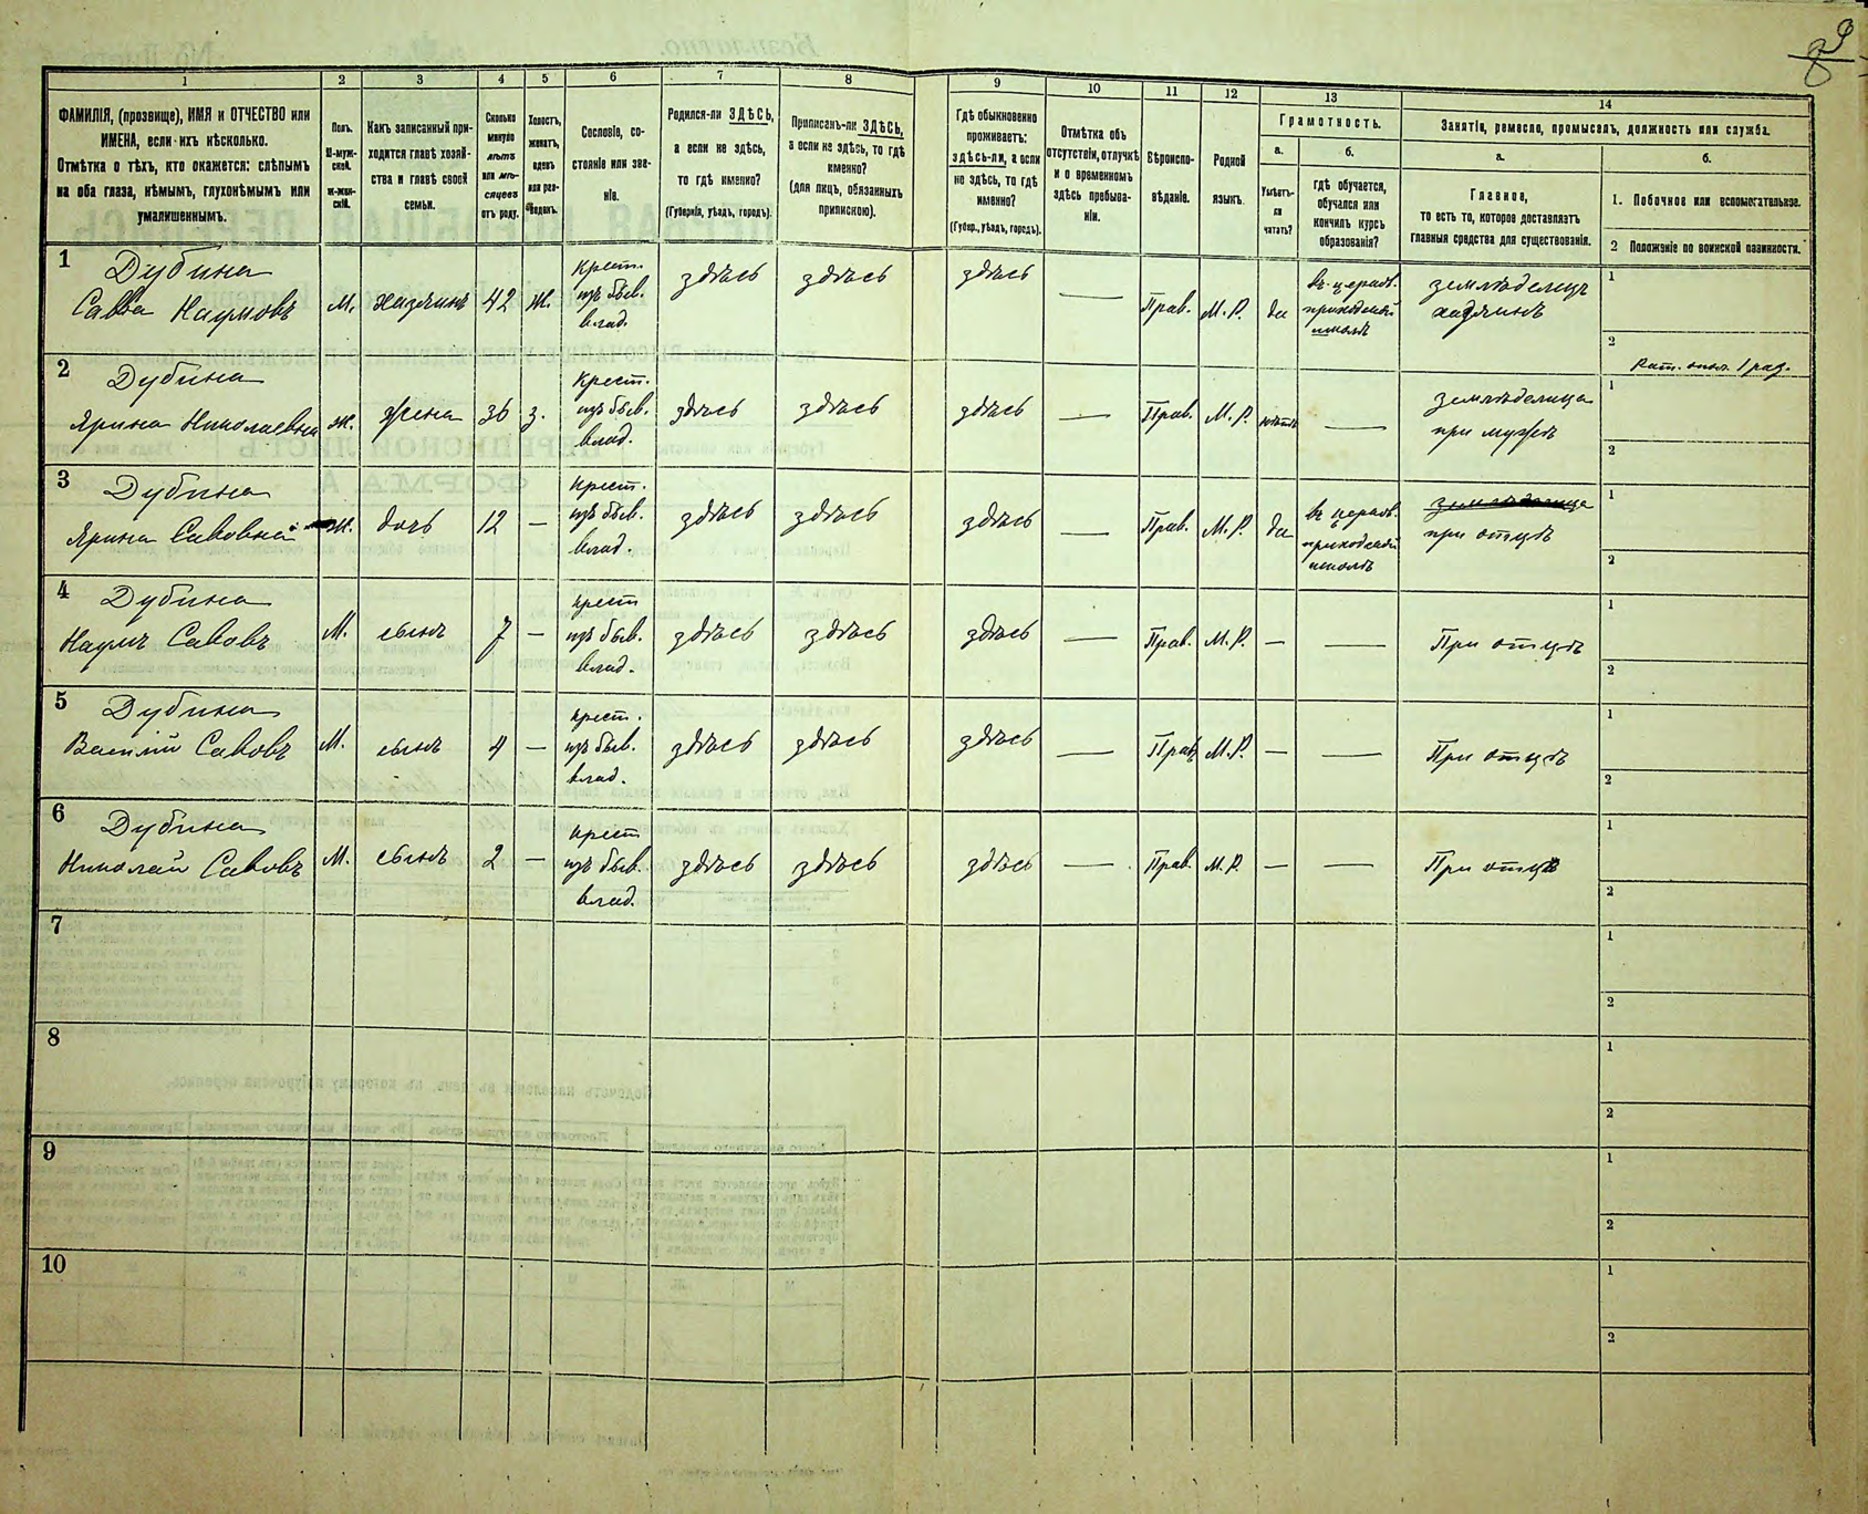 9
8
1 2 3 4 5 6 7 8 9 10 11 12 13 14
ФАМИЛІЯ, (прозвище), ИМЯ и ОТЧЕСТВО или
ИМЕНА, если ихъ нѣсколько.
Отмѣтка о тѣхъ, кто окажется: слѣпымъ
на оба глаза, нѣмымъ, глухонѣмымъ или
умалишеннымъ.
Полъ.
М-муж-
ской.
ж-жен-
скій.
Какъ записанный при-
ходится главѣ хозяй-
ства и главѣ своей
семьи.
Сколько
минуло
лѣтъ
или мѣ-
сяцевъ
отъ роду.
Холостъ,
женатъ,
вдовъ
или раз-
веденъ.
Сословіе, со-
стояніе или зва-
ніе.
Родился-ли ЗДѢСЬ,
а если не здѣсь,
то гдѣ именно?
(Губернія, уѣздъ, городъ).
Приписанъ-ли ЗДѢСЬ,
а если не здѣсь, то гдѣ
именно?
(для лицъ, обязанныхъ
припискою).
Гдѣ обыкновенно
проживаетъ:
здѣсь-ли, а если
не здѣсь, то гдѣ
именно?
(Губер., уѣздъ, городъ).
Отмѣтка объ
отсутствіи, отлучкѣ
и о временномъ
здѣсь пребыва-
ніи.
Вѣроиспо-
вѣданіе.
Родной
языкъ.
Грамотность.
а.
Умѣетъ-
ли
читать?
б.
гдѣ обучается,
обучался или
кончилъ курсъ
образованія?
Занятіе, ремесло, промыселъ, должность или служба.
а.
Главное,
то есть то, которое доставляетъ
главныя средства для существованія.
б.
1. Побочное или вспомогательное.
2 Положеніе по воинской повинности.
1 Дубина
Савва Наумовъ
М. хазяинъ 42 Ж.
Крест.
изъ быв.
влад.
здѣсь здѣсь здѣсь — Прав. М.Р. да
въ церков.
приходской
школѣ
земледелецъ
хазяинъ
1
2
Рат. опол. 1 раз.
2 Дубина
Ярина Николаевна
ж. жена 36 з.
Крест.
изъ быв.
влад.
здѣсь здѣсь здѣсь — Прав. М.Р. —
земледелица
при мужѣ
1
2
3 Дубина
Ярина Савовна
ж. дочь 12 —
Крест.
изъ быв.
влад.
здѣсь здѣсь здѣсь — Прав. М.Р. да
въ церков.
приходской
школѣ
земледелица
при отцѣ
1
2
4 Дубина
Наумъ Савовъ
М. сынъ 7 —
крест
изъ быв.
влад.
здѣсь здѣсь здѣсь — Прав. М.Р. — —
При отцѣ
1
2
5 Дубина
Василій Савовъ
М. сынъ 4 —
крест.
изъ быв.
влад.
здѣсь здѣсь здѣсь — Прав М.Р. — —
При отцѣ
1
2
6 Дубина
Николай Савовъ
М. сынъ 2 —
крест
изъ быв.
влад.
здѣсь здѣсь здѣсь — Прав. М.Р. — —
При отцѣ
1
2
7
1
2
8
1
2
9
1
2
10
1
2